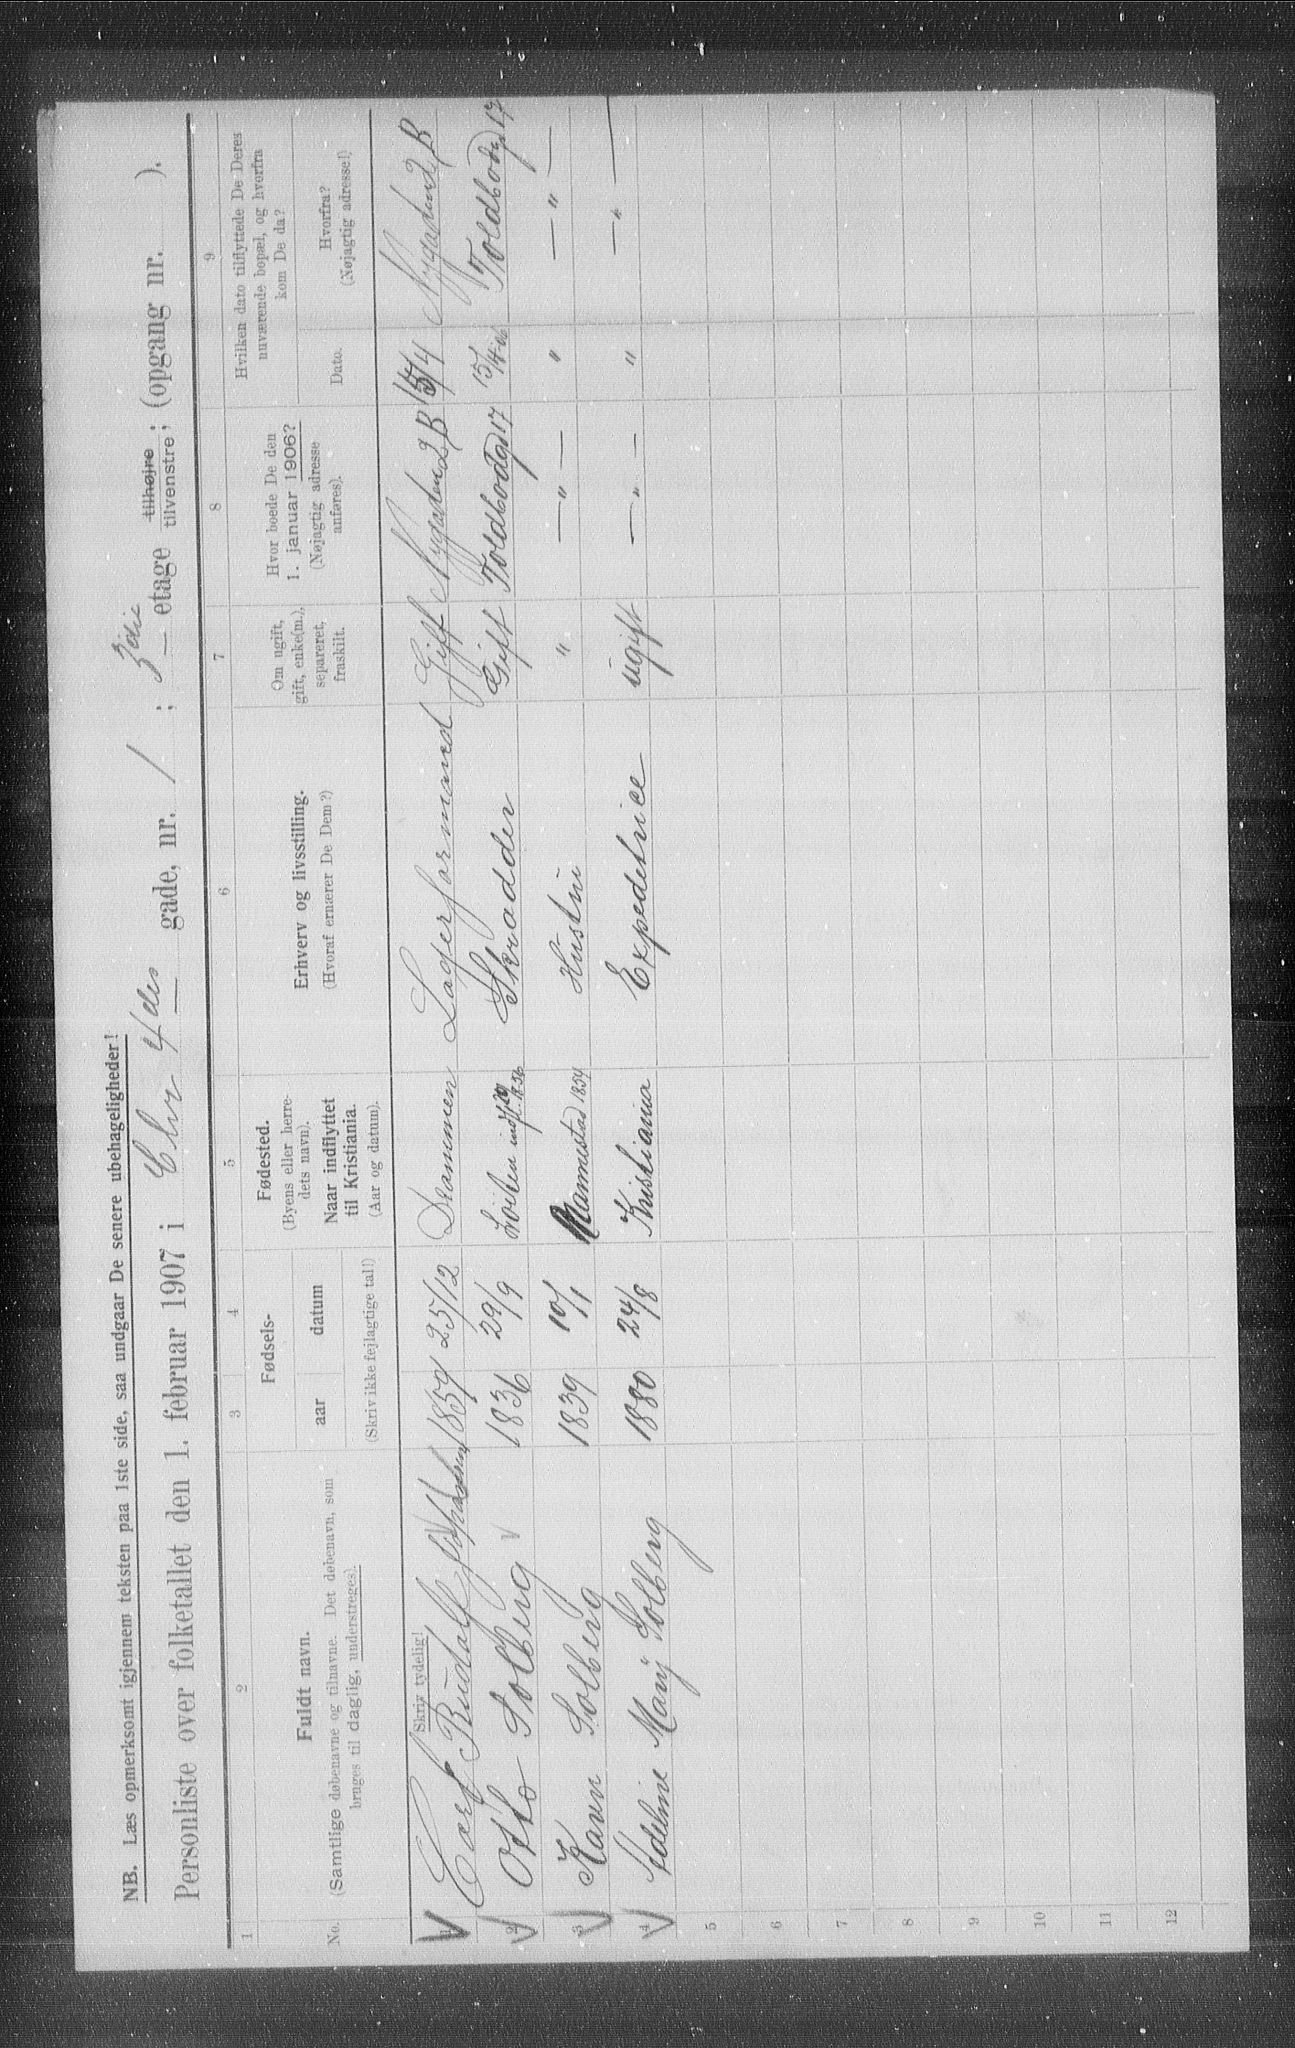 NB. Læs opmerksomt igjennem teksten paa 1ste side, saa undgaar De senere ubehageligheder!
Personliste over folketallet den 1. februar 1907 i Chr 4des gade, nr. 1 ; 3die etage tilhøjre ; tilvenstre ; (opgang nr. ).
1 2 3 4 5 6 7 8 9
No.
Fuldt navn.
(Samtlige døbenavne og tilnavne. Det døbenavn, som
bruges til daglig, understreges).
Fødsels-
aar datum
(Skriv ikke fejlagtige tal!)
Fødested.
(Byens eller herre-
dets navn).
Naar indflyttet
til Kristiania.
(Aar og datum).
Erhverv og livsstilling.
(Hvoraf ernærer De Dem?)
Om ugift,
gift, enke(m.),
separeret,
fraskilt.
Hvor boede De den
1. januar 1906?
(Nøjagtig adresse
anføres).
Hvilken dato tilflyttede De Deres
nuværende bopæl, og hvorfra
kom De da?
Dato.
Hvorfra?
(Nøjagtig adresse!)
Skriv tydelig!
1 Carl Rudolf 1859 25/12 Drammen Lagerformand Gift Nygaden 2 B 15/4 Nygaden 2 B
2 Otto Solberg 1836 29/9 Løiten indfl. 1856 Skrædder Gift Toldbodgd 17 15/4-06 Toldbodgd 17
3 Karen Solberg 1839 10/1 Nannestad 1859 Hustru " — " — " — " —
4 Fedeline Marij Solberg 1880 24/8 Kristiania Expeditrice ugift — " — " — " —
5
6
7
8
9
10
11
12